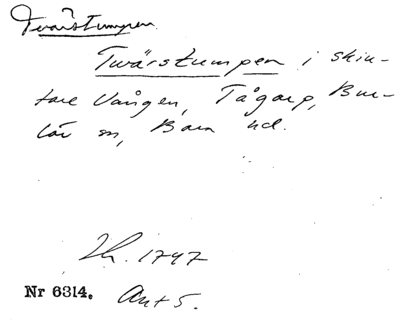 Tvärstumpen
Twärstumpen i skin-
tare Vången, Tågarp, Bur-
löv sn, Bara hd.
Lh. 1747
Nr 6314. Akt 5.